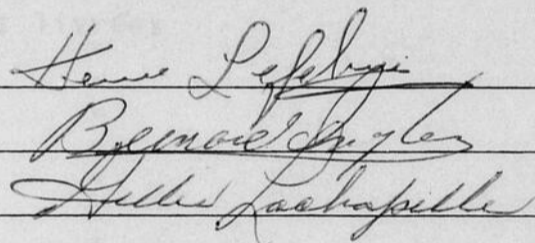 Herve Lefebvre
Bernard Langlois
Gilles Lachapelle